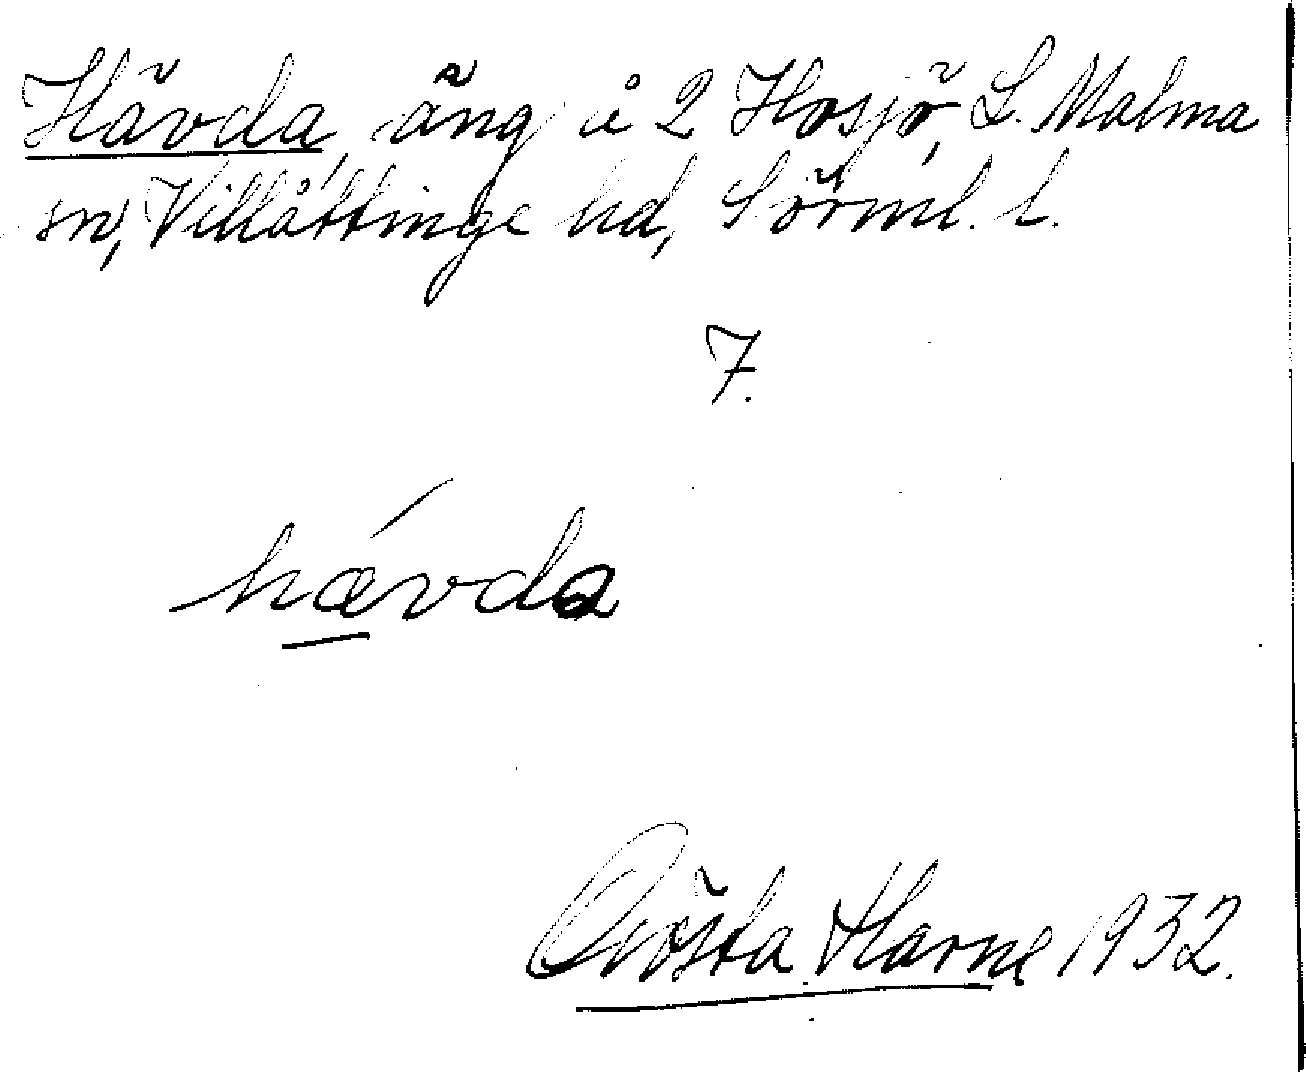 Hävda, äng å 2 Hosjö, L. Malma
sn, Villåttinge hd, Sörml. l.
7.
hævda
Gösta Harne 1932.